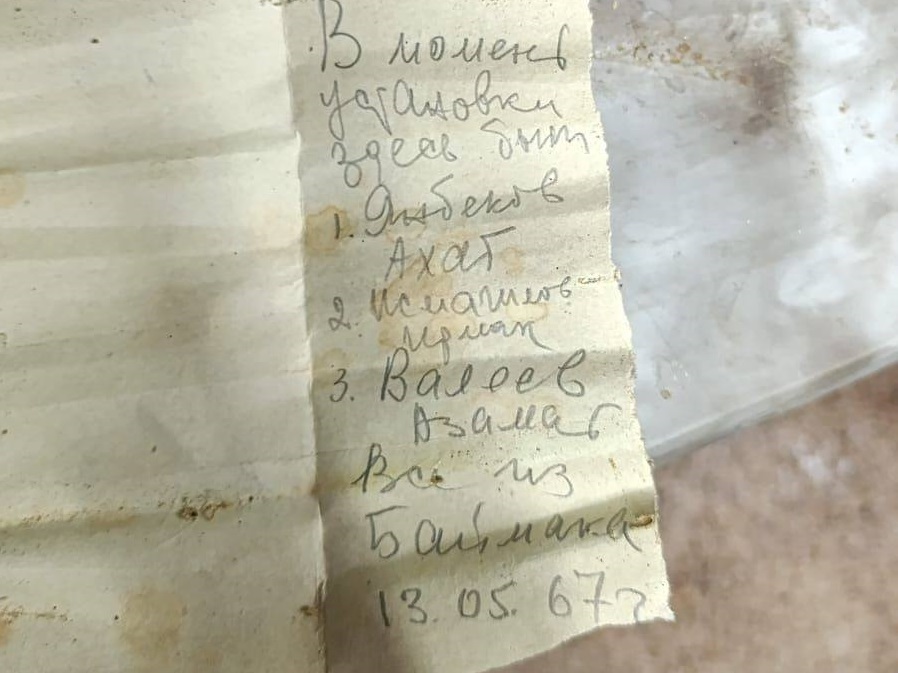 В момент
установки
здесь были
1. Янбеков
Ахат
2. Исмагилов
Ирмак
3. Валеев
Азамат
Все из
Баймака
13.05.67 г